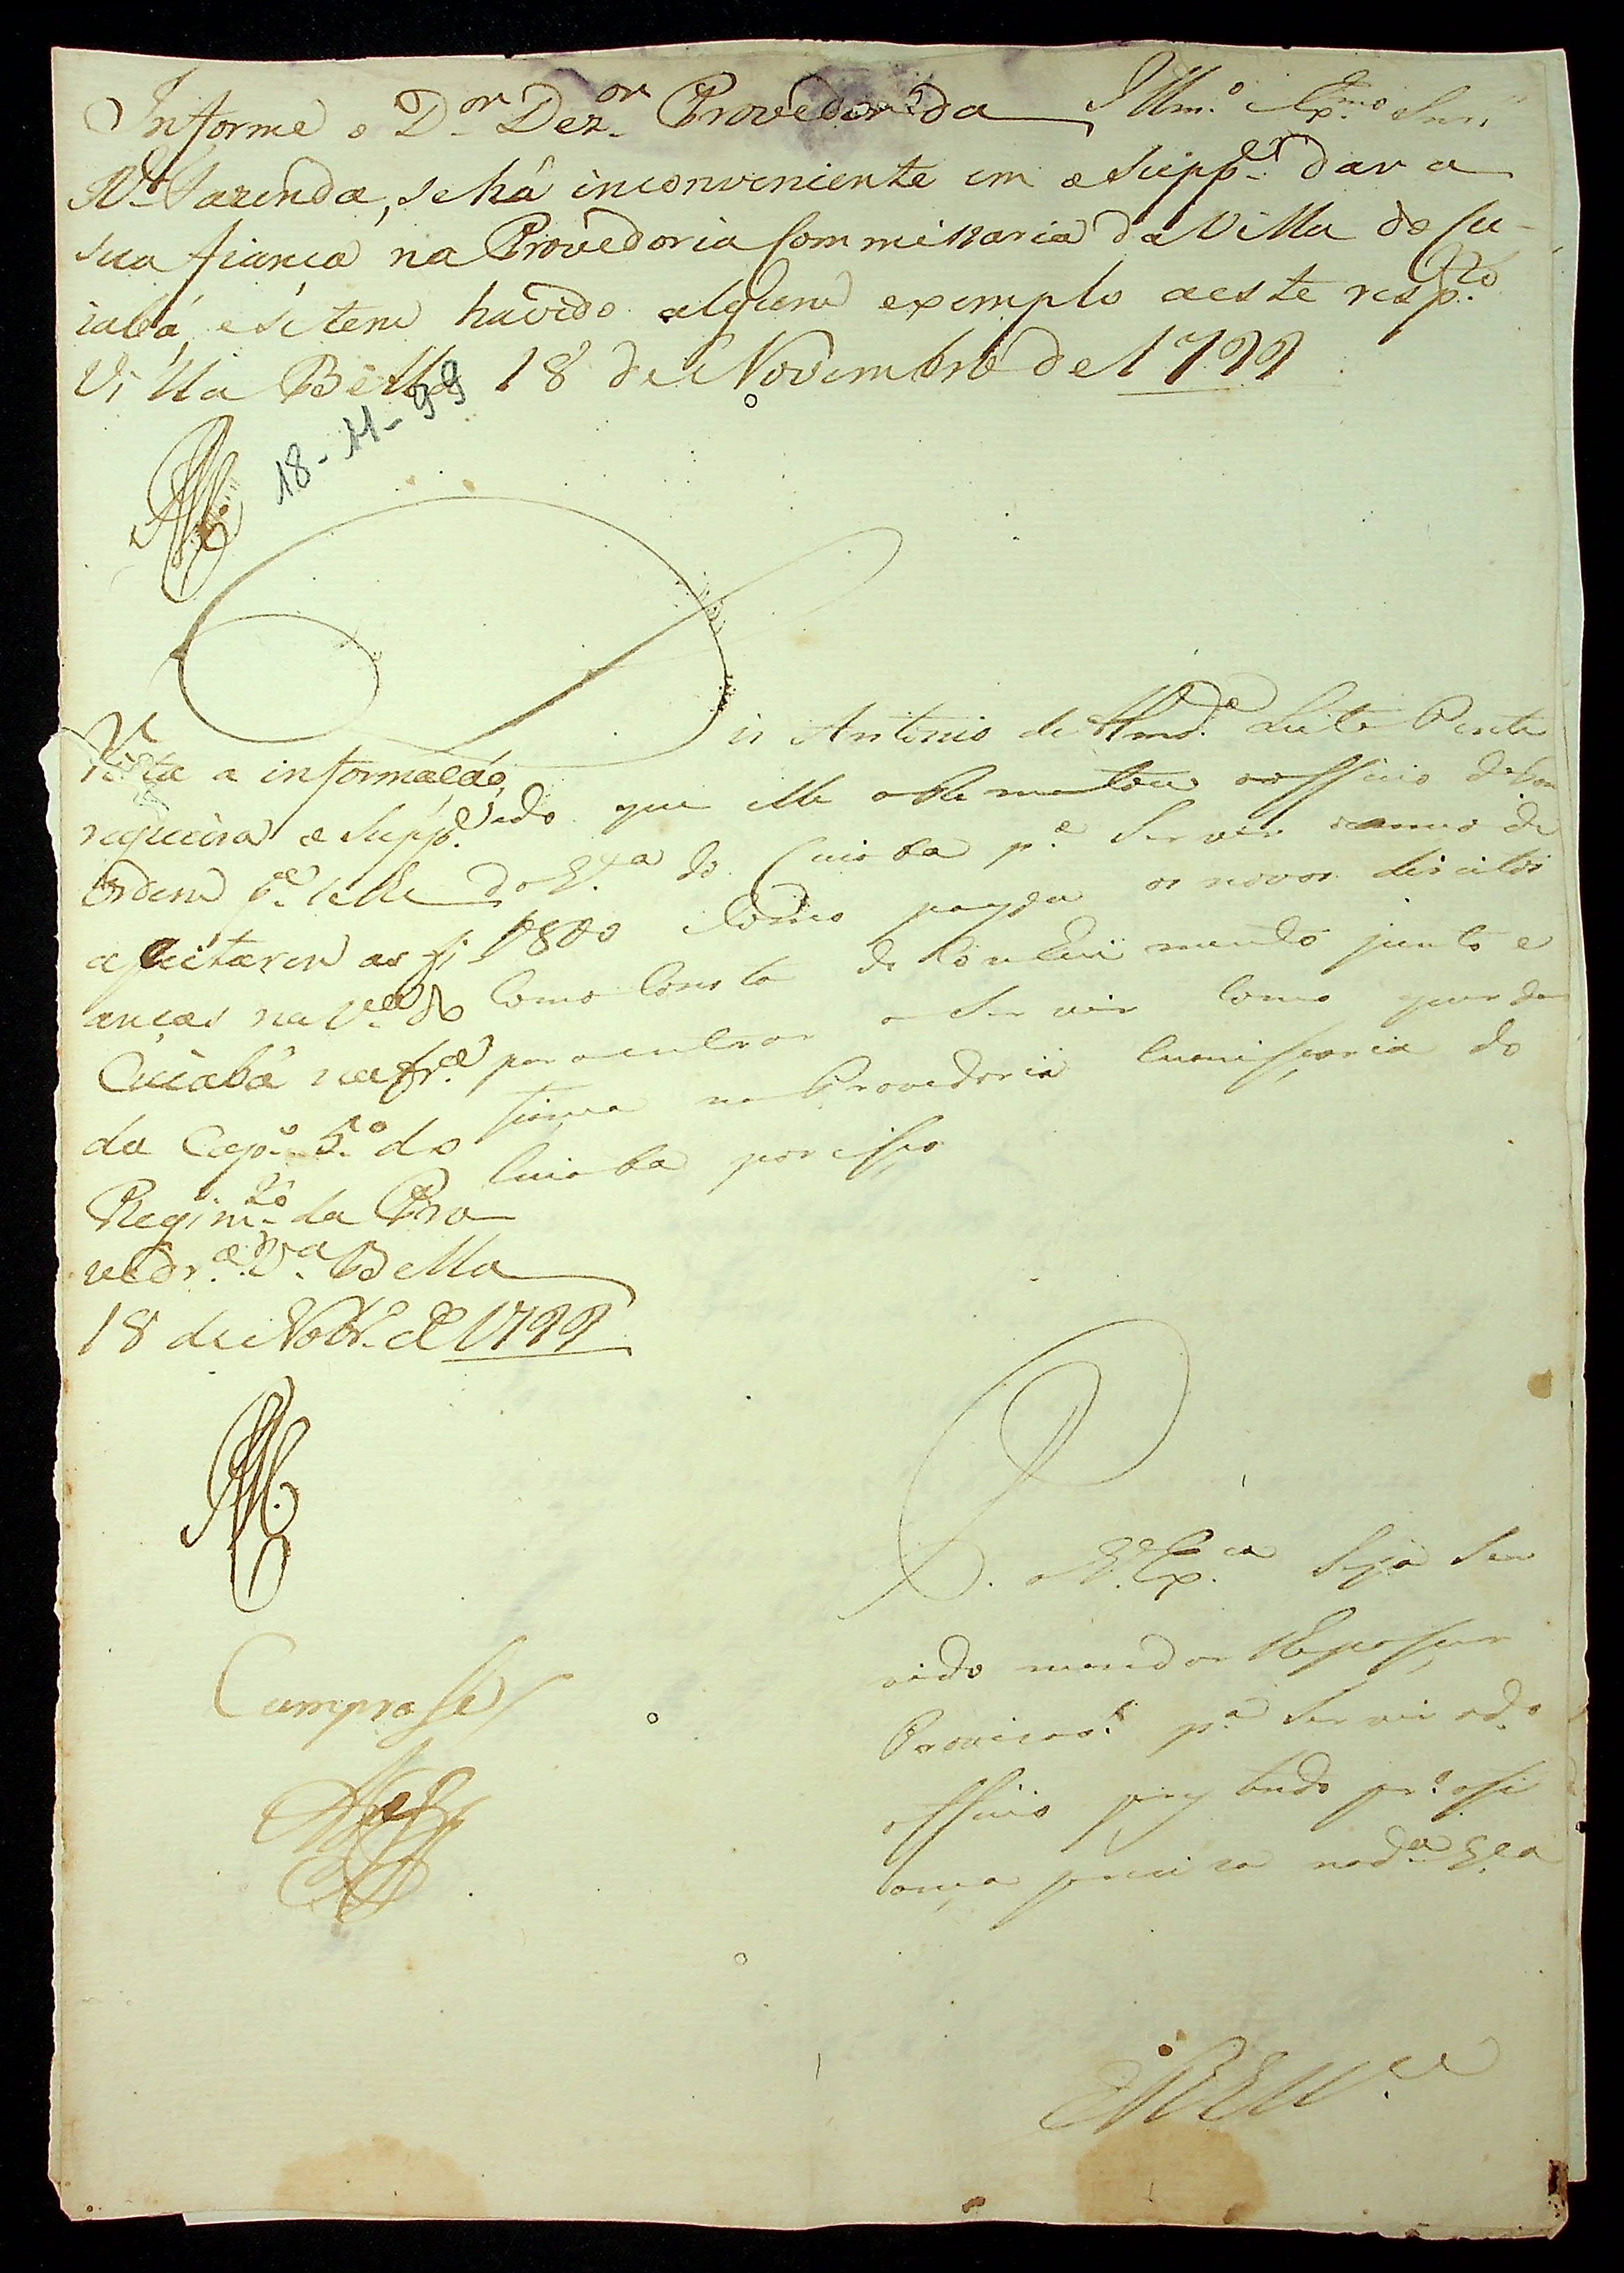 Informe o D.or Dez.or Provedor da
R.l Fazenda, se há inconveniente em o Supp.e dar a
sua fiança na Provedoria Commissaria da Villa do Cu-
iabá, e se tem havido algum exemplo a este resp.to
Villa Bella 18 de Novembro de 1799
18-11-99
Illm.o e Ex.mo Snr.
Diz Antonio de Almd.a Leite Pente
ado que elle a Rematou o officio de
da V.a do Cuiaba p.a Servir o anno de
1800 e Como pagou os novos direitos
Como Consta do Conhecimento junto e
para entrar a Servir Como quer dar
fiança na Provedoria Comissaria do
Cuiaba por isso
Vista a informação,
requeira o Supp.e
Ordem p.a se lhe
aceitarem as fi
anças na V.a do
Cuiabá na fr.a
do Cap.o 5.o do
Regim.to da Pro
vedr.a V.a Bella
18 de Nobr.o de 1799
P. a V. Ex.ca Seja Ser
vido mandar
Provisão p.a Servir o d.o
officio prestando pr.o a fi
ança precisa na d.a V.a
Cumprase
E R M.ce